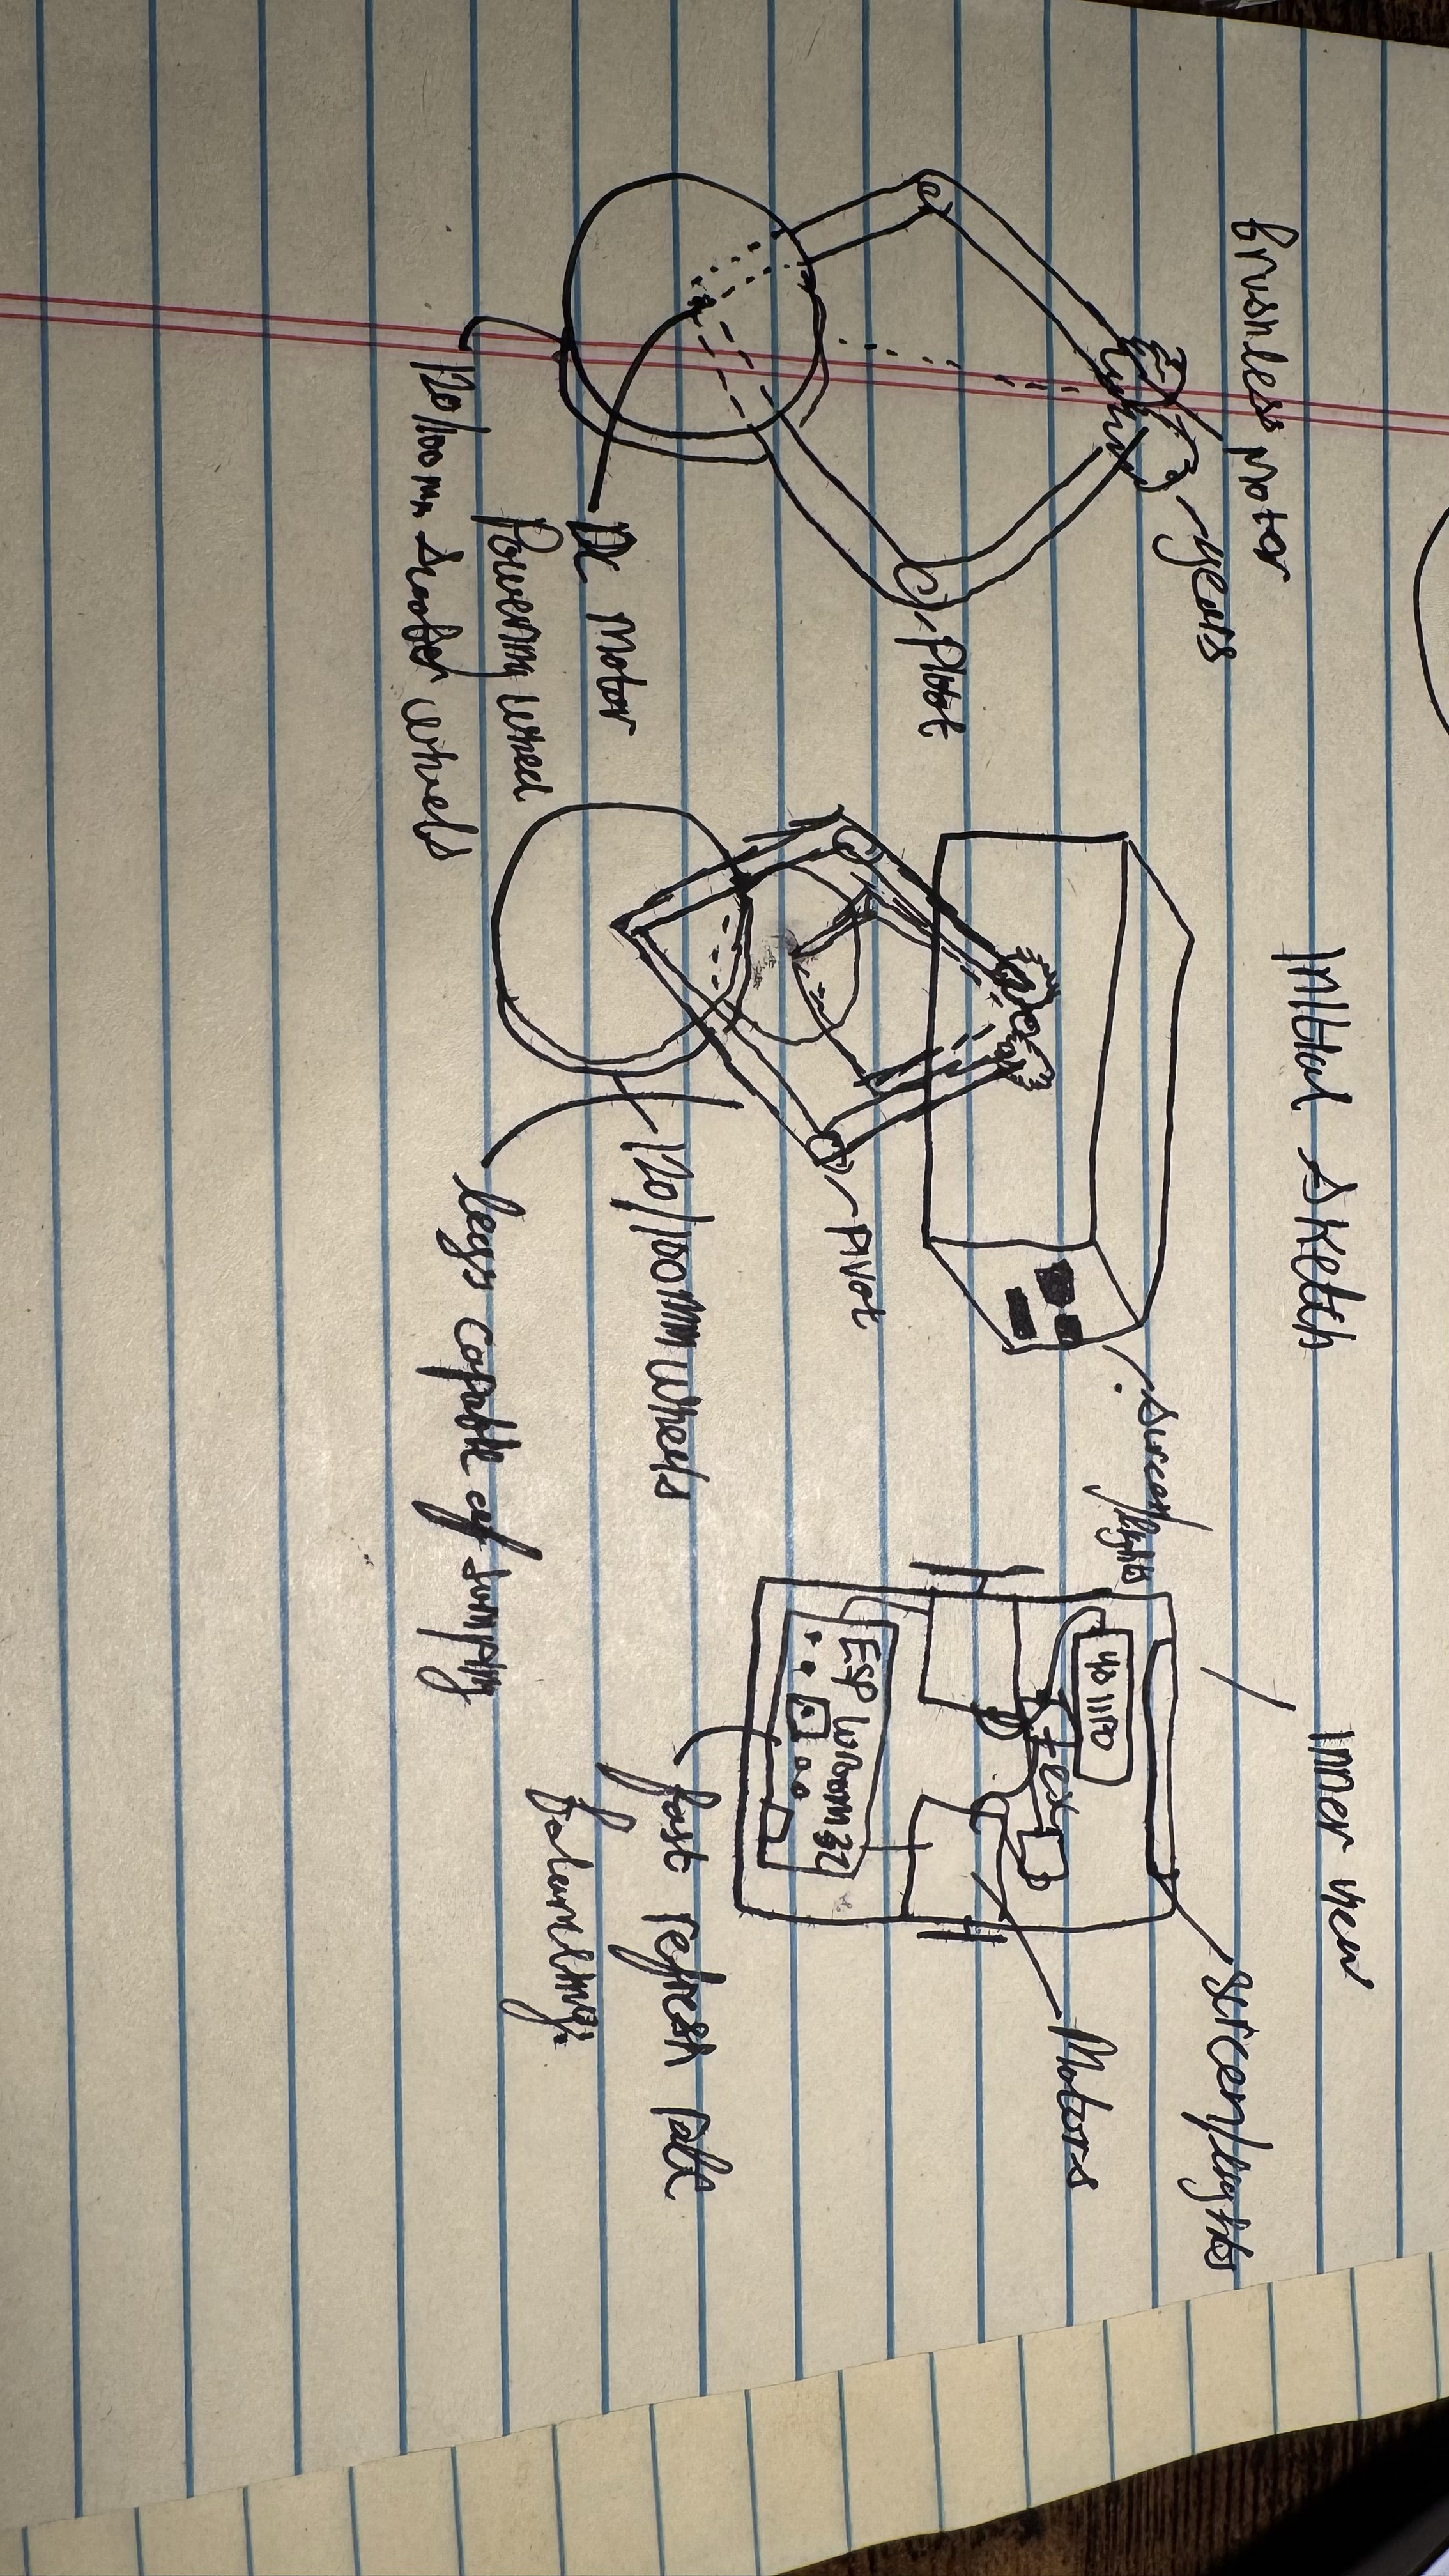 Initial sketch
Inner view
brushless motor
gears
Pivot
DC motor
Powering wheel
120/100mm scooter wheels
screen/
lights
Pivot
120/100mm wheels
legs capable of jumping
screen/lights
Motors
ESP WROOM 32
fast refresh rate
balancing